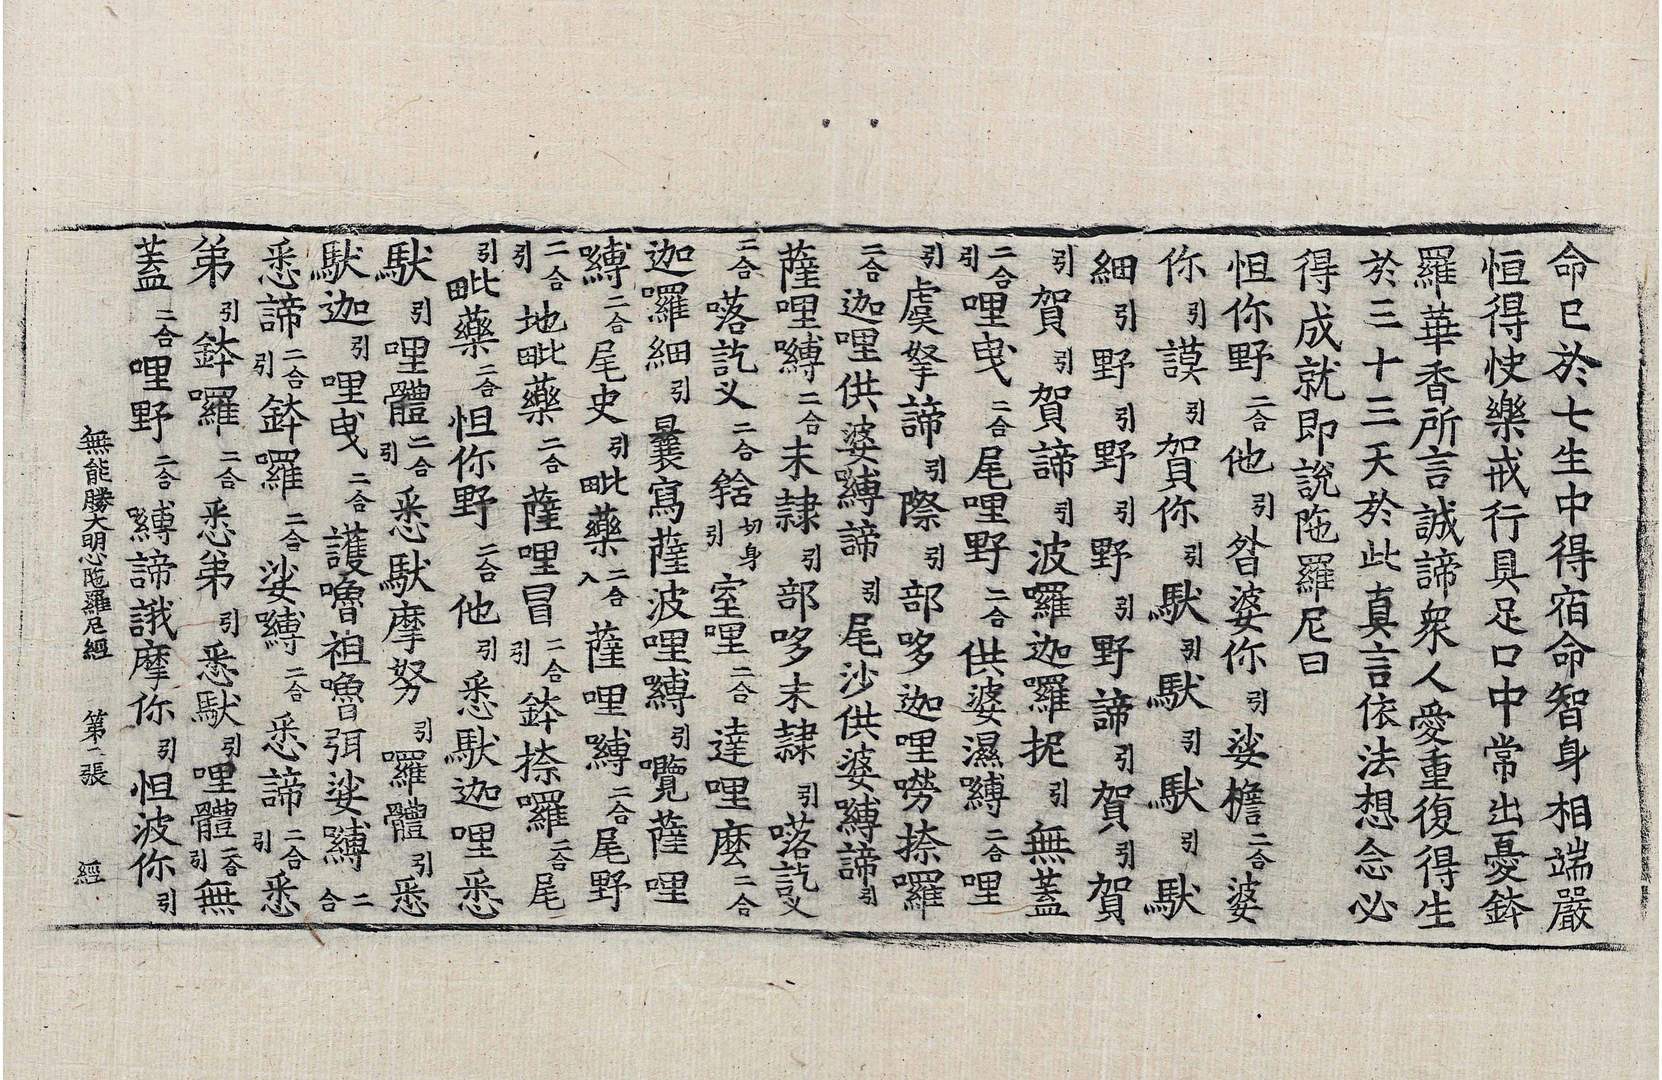 命已於七生中得宿命智身相端嚴
恒得快樂戒行具足口中常出憂鉢
羅華香所言誠諦衆人愛重復得生
於三十三天於此真言依法想念必
得成就即說陁羅尼曰
怛你野二合他引喒婆你引娑檐二合婆
你引謨引賀你引馱引馱引馱引馱
細引野引野引野引野諦引賀引賀
引賀引賀諦引波囉迦囉抳引無蓋
二合引哩曳二合尾哩野二合供婆濕嚩二合哩
引虞拏諦引際引部哆迦哩嘮捺囉
二合迦哩供婆嚩諦引尾沙供婆嚩諦引
薩哩嚩二合末隷引部哆末隷引喀訖叉
二合喀訖叉二合䭃切身引室哩二合達哩麽二合
迦囉細引曩寫薩波哩嚩引囕薩哩
嚩二合尾史引毗藥二合入薩哩嚩二合尾野
二合引地毗藥二合薩哩冒二合引鉢捺囉二合尾
引毗藥二合怛你野二合他引悉馱迦哩悉
馱引哩體二合引悉馱摩努引囉體引悉
馱迦引哩曳二合護嚕祖嚕弭娑嚩二合
悉諦二合引鉢囉二合娑嚩二合悉諦二合引悉
弟引鉢囉二合悉弟引悉馱引哩體二合引無
蓋二合哩野二合嚩諦誐摩你引怛波你引
無能勝大明心陁羅尼經 第二張 經